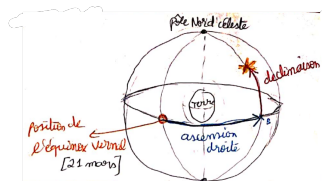 pôle Nord céleste
declinaison
Terre
B
Position de
l'équinoxe vernal
[21 mars]
ascension
droite